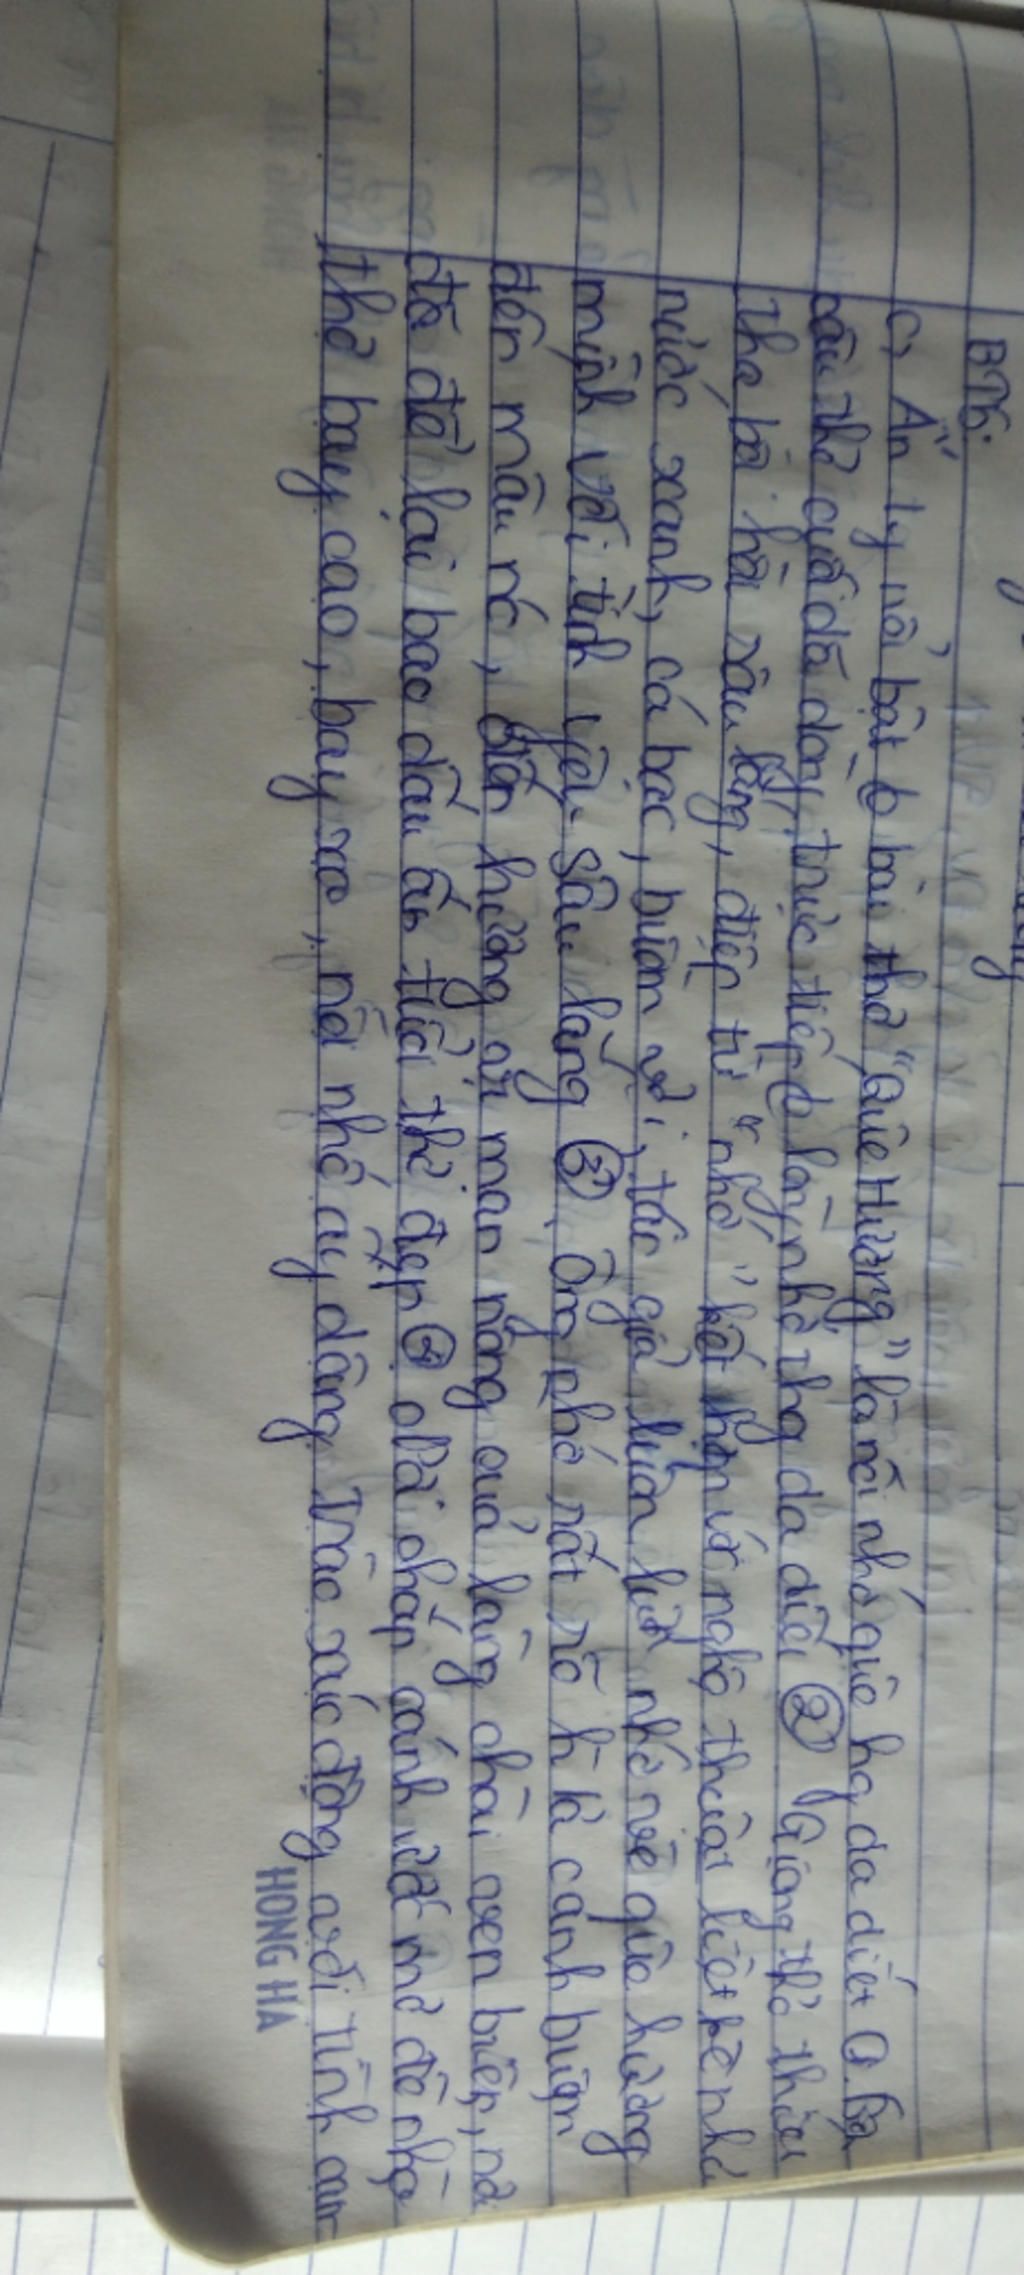 BTVN:
c, Ấn tg nổi bật ở bài thơ "Quê Hương" là nỗi nhớ quê hg da diết ①. Ba
câu thơ cuối đã dóng trực tiếp lên nhớ thg da diết ② Giọng thơ thấu
tha bồi hồi sâu lắng, điệp từ "nhớ" kết hợp với nghệ thuật liệt kê nhớ
nước xanh, cá bạc, buồm vôi, tác giả luôn luôn nhớ về quê hương
mình với tình yêu sâu lắng ③. Ông nhớ rất rõ h'/ả cánh buồm
đến màu nó, đến hương vị man nồng của làng chài ven biển, nơi
đó để lại bao dấu ấn tuổi thơ đẹp ④ chắp cánh ước mơ để nhà
thơ bay cao, bay xa, nỗi nhớ ấy dâng trào xúc động với tình
HONG HA